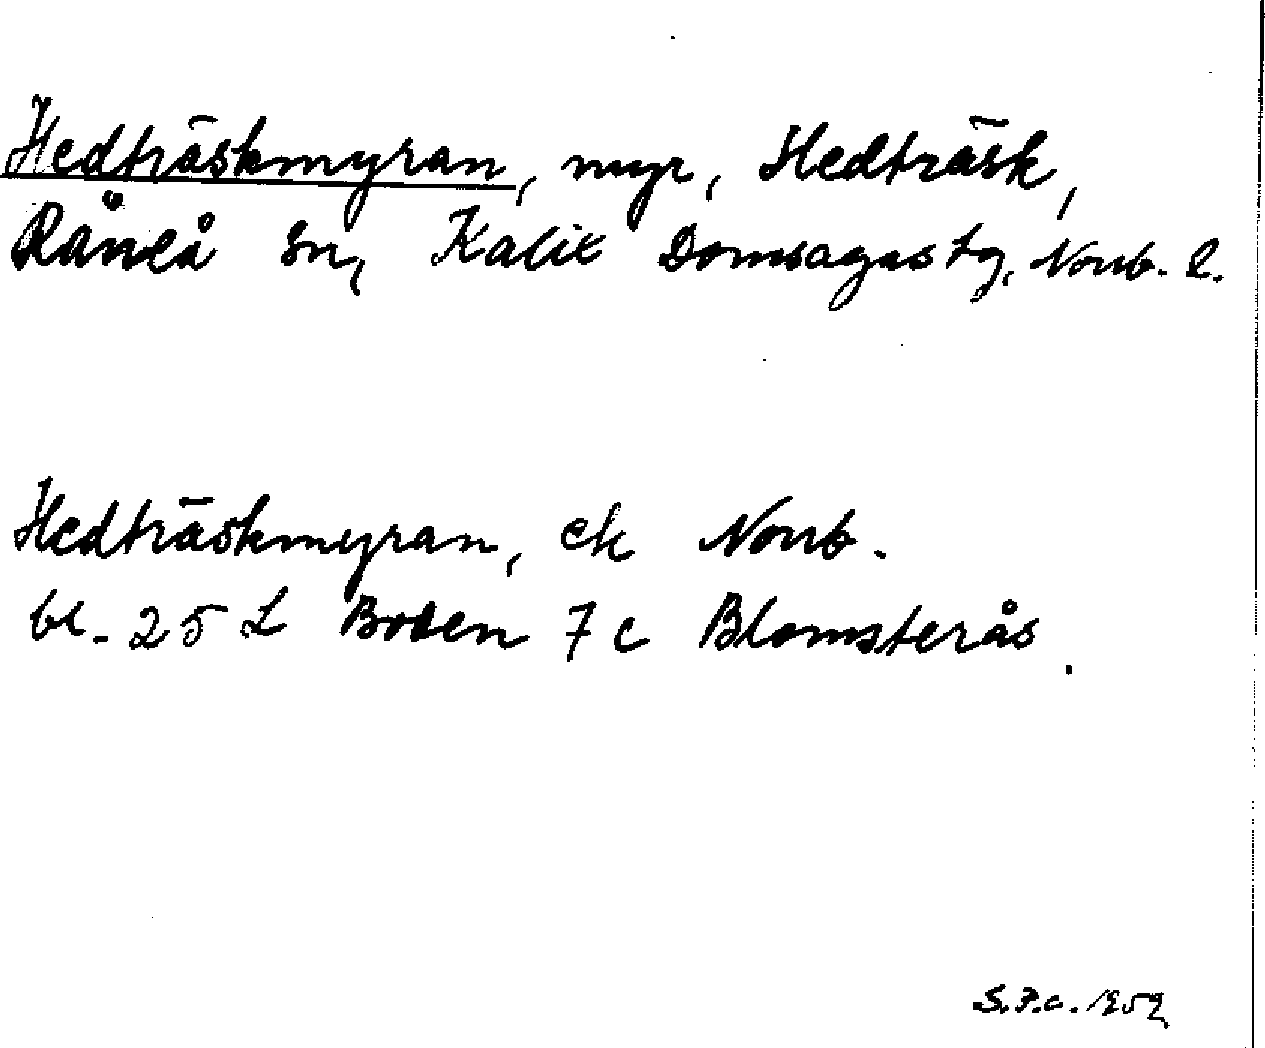 Hedträskmyran, myr, Hedträsk,
Råneå sn, Kalix Domsagas tg, Norrb. l.
Hedträskmyran, ek Norrb.
bl. 25 L Boden 7 c Blomsterås.
1959